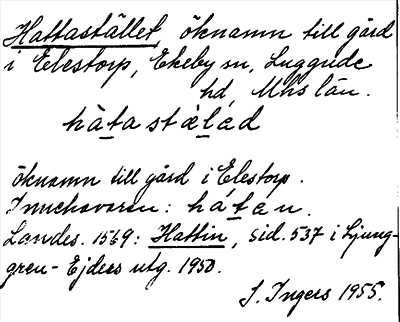 Hattastället, öknamn till gård
i Elestorp, Ekeby sn, Luggude
hd, Mhs län.
hàtastäl̀ad
öknamn till gård i Elestorp.
Innehavaren: hátan.
Landes. 1569: Hattin, sid. 537 i Ljung-
gren-Ejders utg. 1950.
I. Ingers 1955.